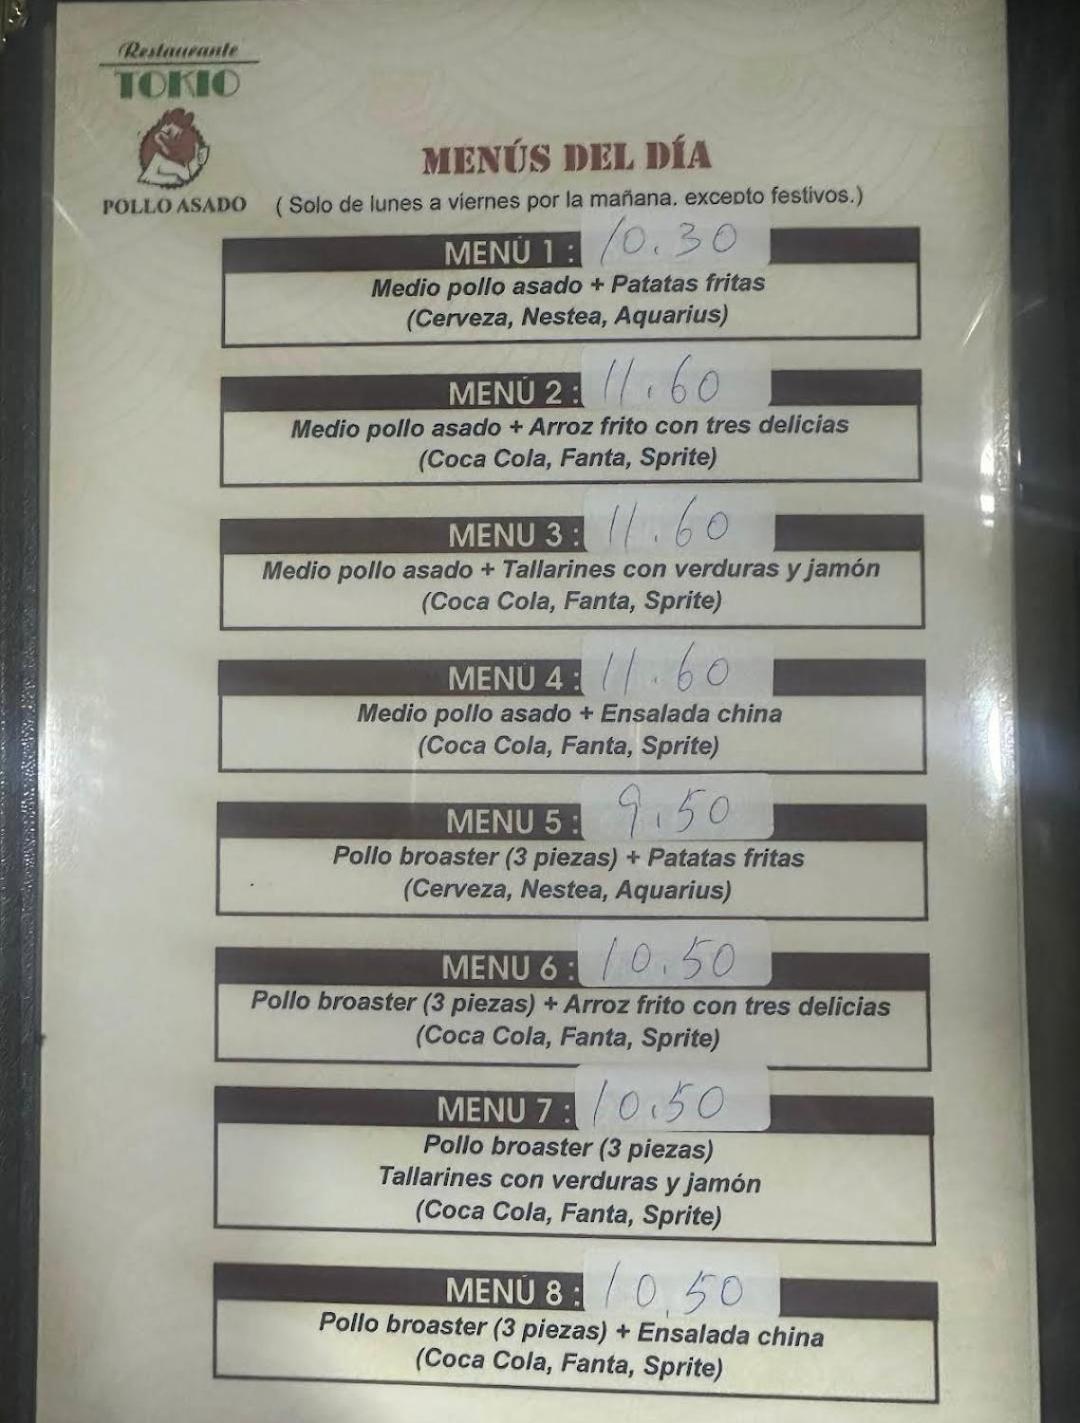 Restaurante
TOKIO
POLLO ASADO
MENÚS DEL DÍA
( Solo de lunes a viernes por la mañana. excepto festivos.)
MENÚ 1 : 10.30
Medio pollo asado + Patatas fritas
(Cerveza, Nestea, Aquarius)
MENÚ 2 : 11.60
Medio pollo asado + Arroz frito con tres delicias
(Coca Cola, Fanta, Sprite)
MENU 3 : 11.60
Medio pollo asado + Tallarines con verduras y jamón
(Coca Cola, Fanta, Sprite)
MENÚ 4 : 11.60
Medio pollo asado + Ensalada china
(Coca Cola, Fanta, Sprite)
MENU 5 : 9.50
Pollo broaster (3 piezas) + Patatas fritas
(Cerveza, Nestea, Aquarius)
MENU 6 : 10.50
Pollo broaster (3 piezas) + Arroz frito con tres delicias
(Coca Cola, Fanta, Sprite)
MENU 7 : 10.50
Pollo broaster (3 piezas)
Tallarines con verduras y jamón
(Coca Cola, Fanta, Sprite)
MENÚ 8 : 10.50
Pollo broaster (3 piezas) + Ensalada china
(Coca Cola, Fanta, Sprite)